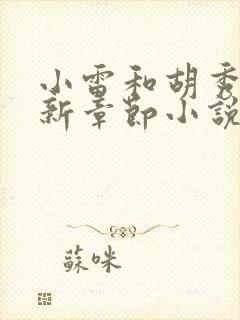 小雷和胡秀
新章節小說
蘇咪